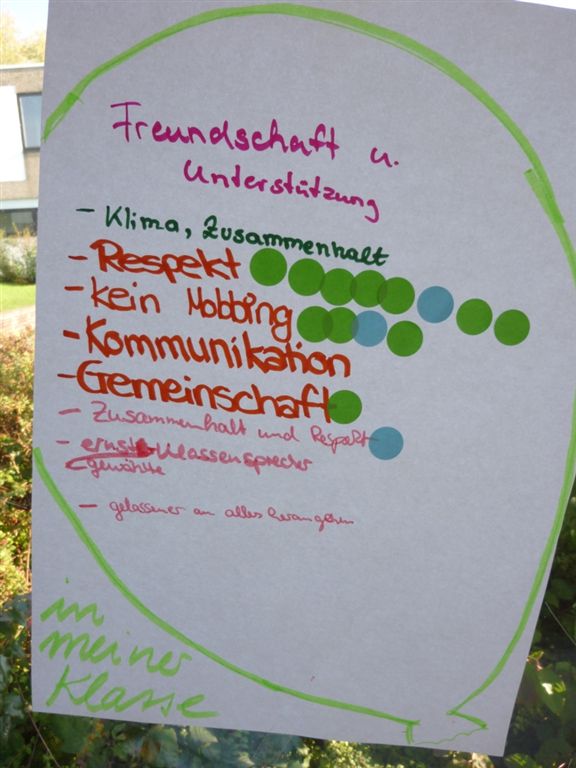 Freundschaft u.
Unterstützung
- Klima, Zusammenhalt
- Respekt
- kein Mobbing
- Kommunikation
- Gemeinschaft
- Zusammenhalt und Respekt
- ernst Klassensprecher
gewählte
- gelassener an alles herangehen
in
meiner
Klasse